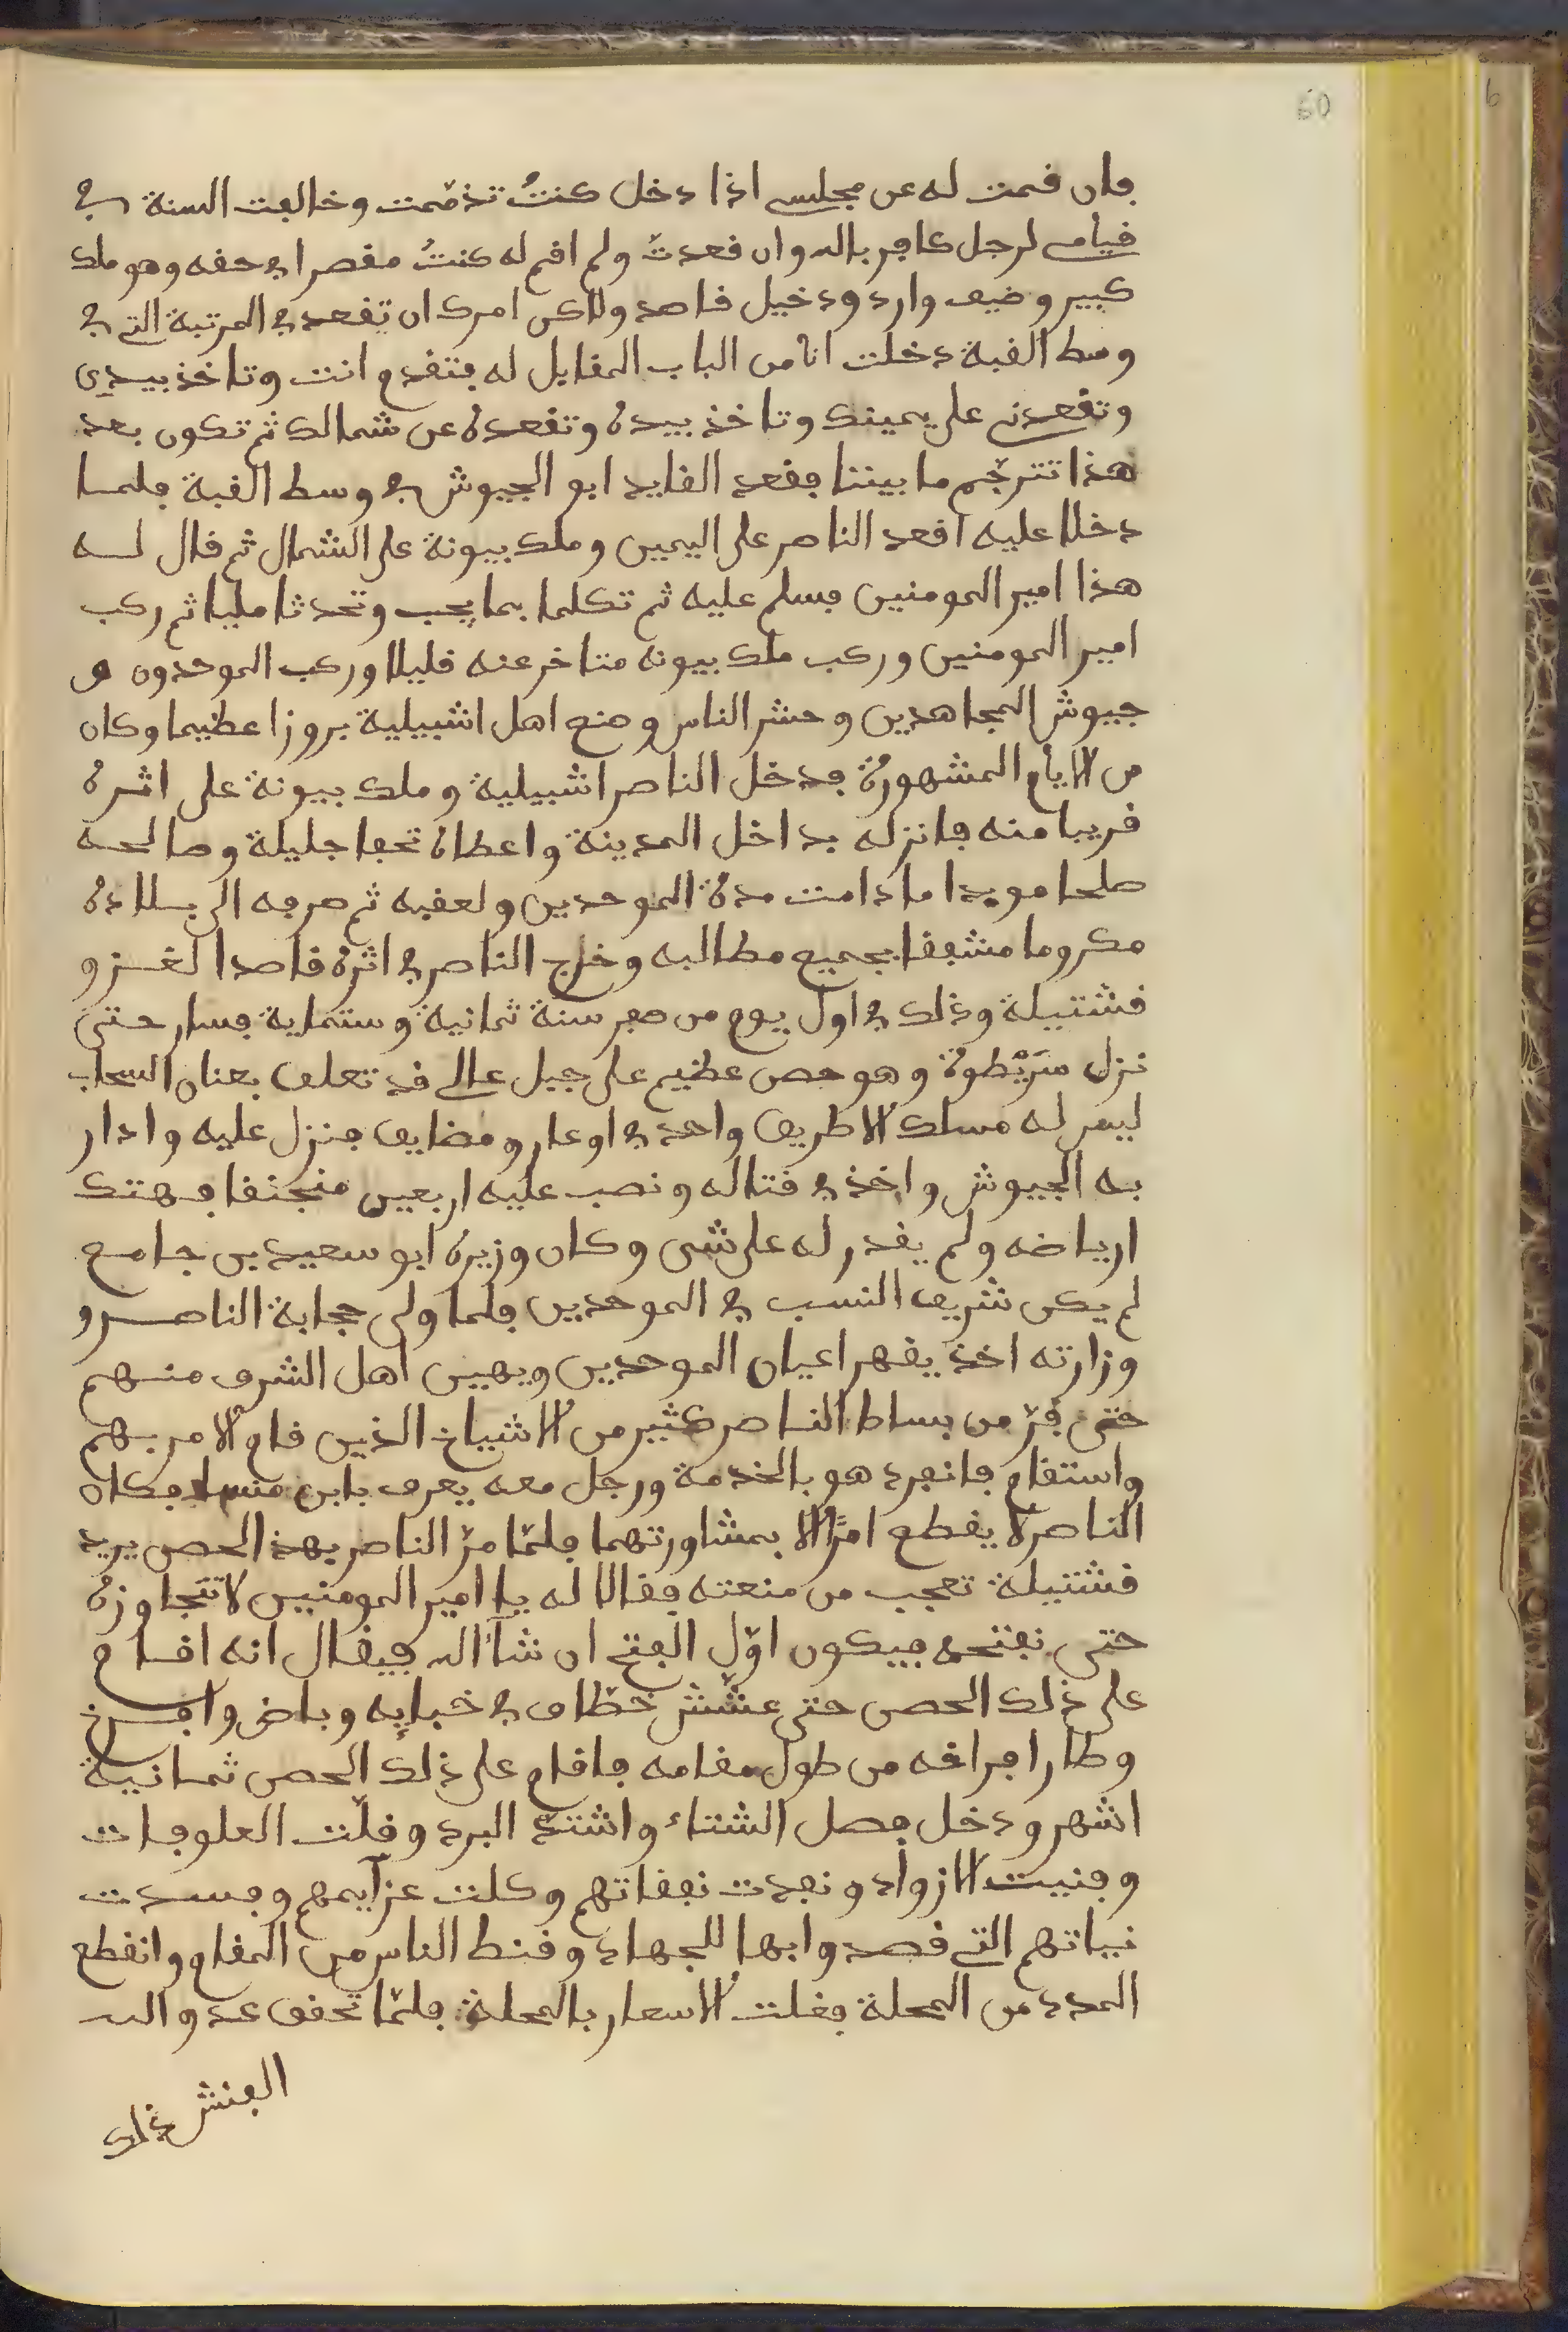 60
فان قمت له عن مجلسي اذا دخل كنتُ تذممت وخالفت السنة في
قيامي لرجل كافر بالله وان قعدتُ ولم اقم له كنتُ مقصرا في حقه وهو ملك
كبير وضيف وارد ودخيل قاصد ولاكن امرك ان تقعد في المرتبة التي في
وسط القبة دخلت انا من الباب المقابل له فتقدم انت وتاخذ بيدي
وتقعدني على يمينك وتاخذ بيده وتقعده عن شمالك ثم تكون بعد
هذا تترجم ما بيننا فقعد القايد ابو الجيوش في وسط القبة فلما
دخلا عليه اقعد الناصر على اليمين وملك بيونة على الشمال ثم قال له
هذا امير المومنين فسلم عليه ثم تكلما بما يجب وتحدثا مليا ثم ركب
امير المومنين وركب ملك بيونه متاخر عنه قليلا وركب الموحدون و
جيوش المجاهدين وحشر الناس وصنع اهل اشبيلية بروزا عظيما وكان
من الايام المشهورة فدخل الناصر اشبيلية وملك بيونة على اثره
قريبا منه فانزله بداخل المدينة واعطاه تحفا جليلة وصالحه
صلحا مويدا ما دامت مدة الموحدين ولعقبه ثم صرفه الى بلاده
مكروما مشفقا بجميع مطالبه وخرج الناصر في اثره قاصدا لغزو
قشتيلة وذلك في اول يوم من صفر سنة ثمانية وستماية فسار حتى
نزل سَرْبَطوة وهو حصن عظيم على جبل عالي قد تعلق بعنان السحاب
ليس له مسلك الا طريق واحد في اوعار ومضايق فنزل عليه وادار
به الجيوش واخذ في قتاله ونصب عليه اربعين منجنقا فهتك
ارباضه ولم يقدر له على شى وكان وزيره ابو سعيد بن جامع
لم يكن شريف النسب في الموحدين فلما ولى حجابة الناصر و
وزارته اخذ يقهر اعيان الموحدين ويهين اهل الشرف منهم
حتى فرّ من بساط الناصر كثير من الاشياخ الذين قام الامر بهم
واستقام فانفرد هو بالخدمة ورجل معه يعرف بابن منسا فكان
الناصر لا يقطع امرًا الا بمشاورتهما فلمّا مرّ الناصر بهذ الحصن يريد
قشتيلة تعجب من منعته فقالا له يا امير المومنين لا تتجاوزه
حتى نفتحه فيكون اوّل الفتح ان شآ الله فيقال انه اقام
على ذلك الحصن حتى عشّش خطّاف في خبايه وباض وافرخ
وطار افراخه من طول مقامه فاقام على ذلك الحصن ثمانية
اشهر ودخل فصل الشتاء واشتدّ البرد وقلّت العلوفات
وفنيت الازواد ونفدت نفقاتهم وكلت عزآيمهم وفسدت
نياتهم التي قصدوا بها للجهاد وقنط الناس من المقام وانقطع
المدد من المحلة فغلت الاسعار بالمحلة فلمّا تحقق عدو الله
الفنش ذلك